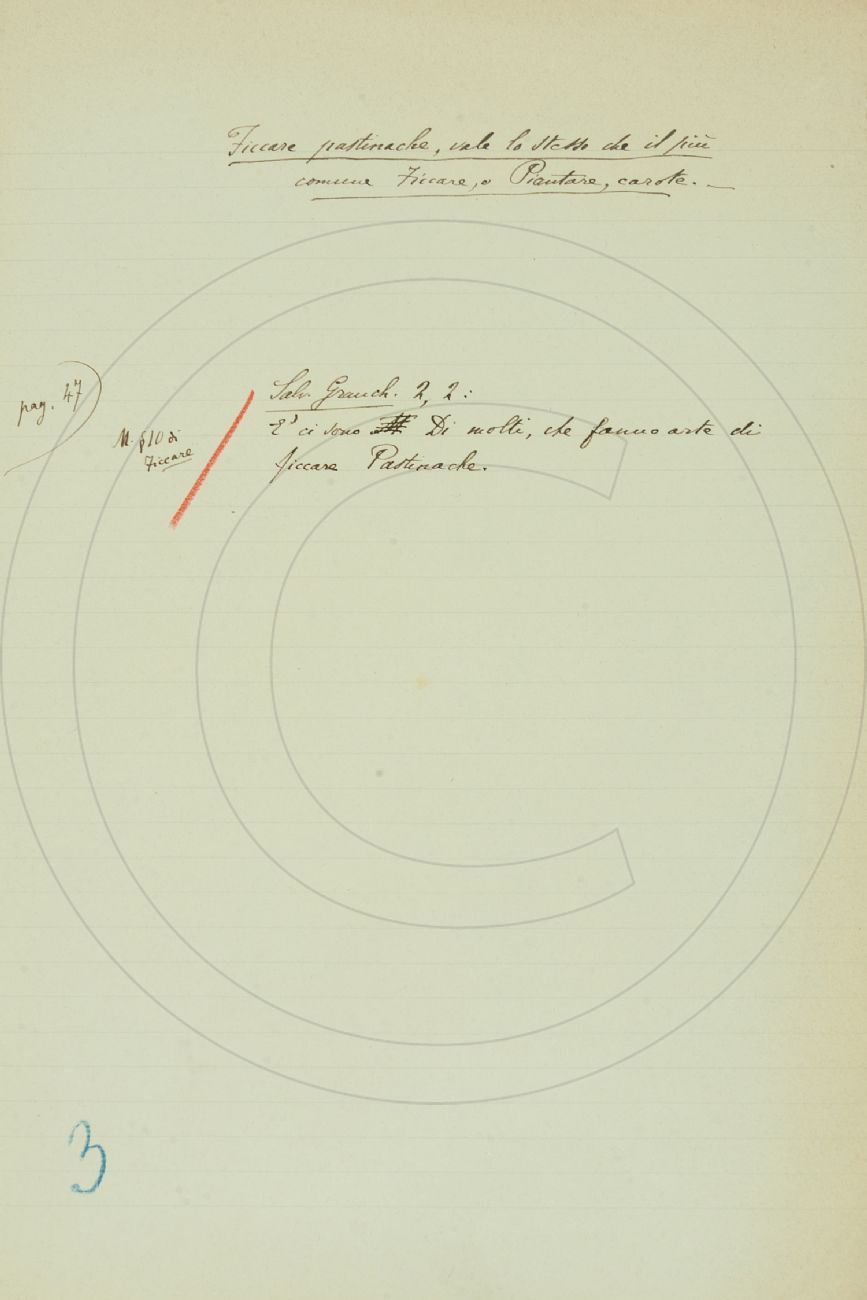 Ficcare pastinache, vale lo stesso che il più
comune Ficcare, o Piantare, carote. _
pag. 47
Salv. Granch. 2, 2:
E' ci sono Di molti, che fanno arte di
ficcare Pastinache.
§ 10 di
Ficcare
3